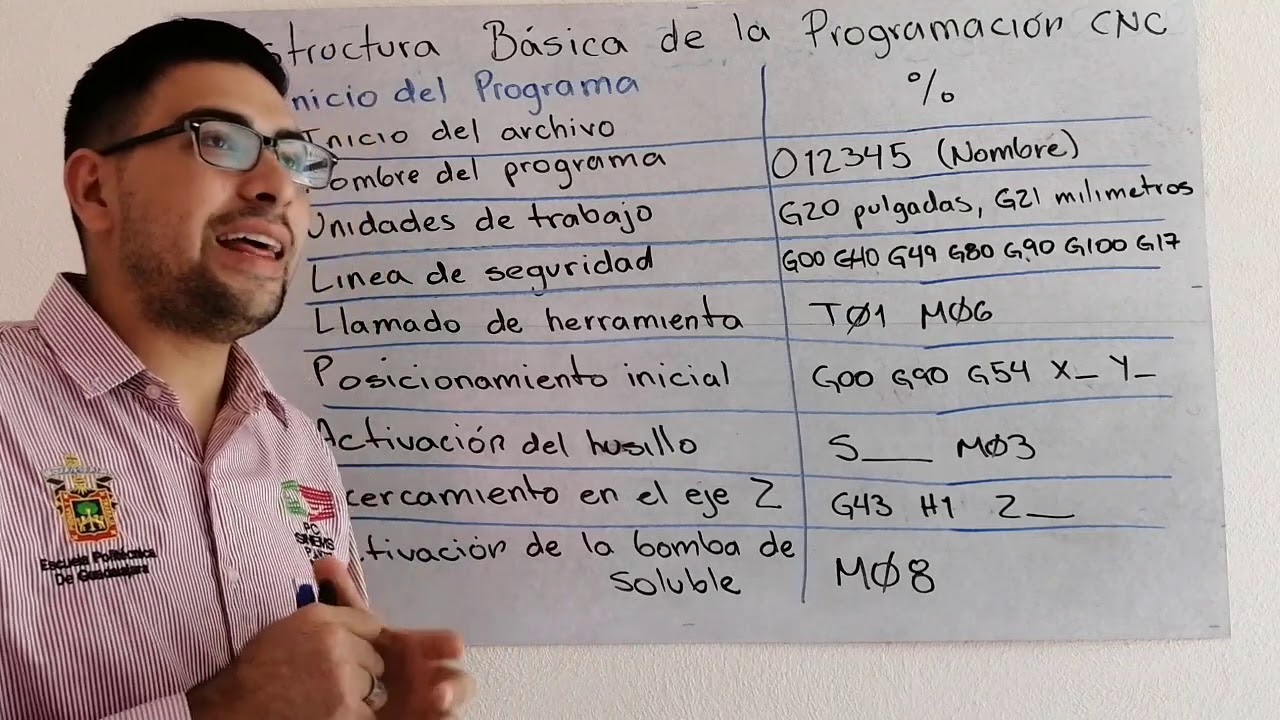 structura Básica de la Programación CNC
nicio del Programa
Inicio del archivo %
ombre del programa O12345 (Nombre)
Unidades de trabajo G20 pulgadas, G21 milimetros
Linea de seguridad G00 G40 G49 G80 G90 G100 G17
Llamado de herramienta TØ1 MØ6
Posicionamiento inicial G00 G90 G54 X_ Y_
Activación del husillo S___ MØ3
cercamiento en el eje Z G43 H1 Z__
tivación de la bomba de
soluble MØ8
Escuela Politécnica
De Guadalajara